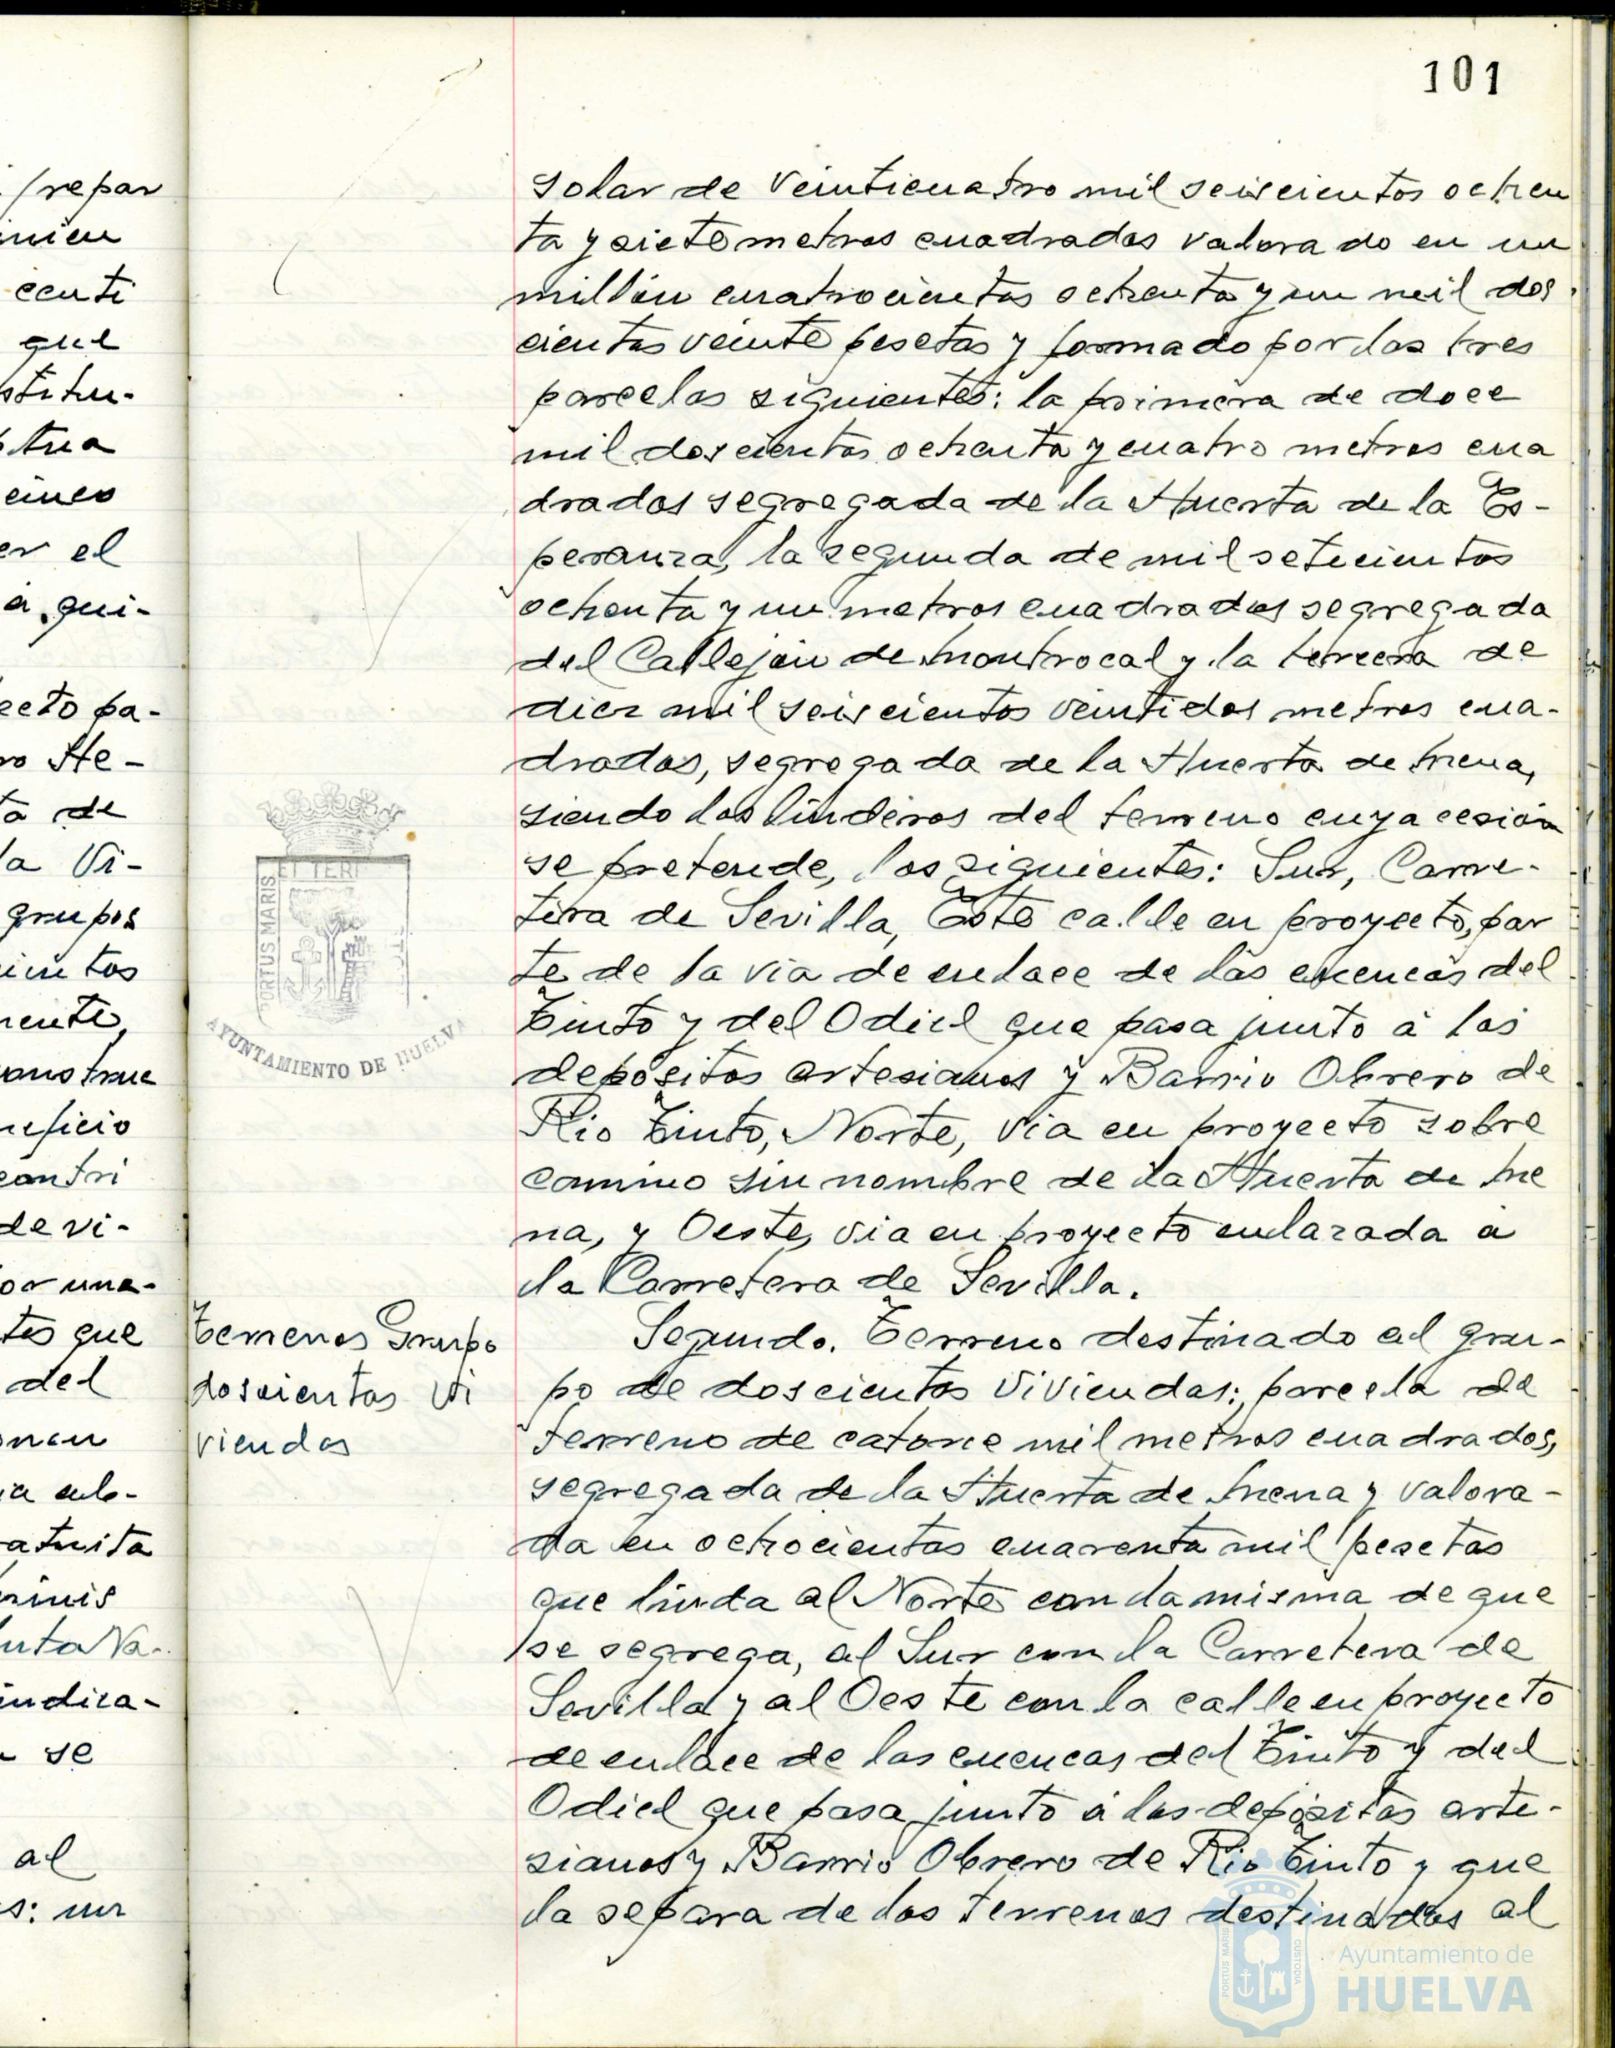 101
solar de veinticuatro mil seiscientos ochen
ta y siete metros cuadrados valorado en un
millón cuatrocientos ochenta y un mil dos
cientas veinte pesetas y formado por las tres
parcelas siguientes: la primera de doce
mil doscientos ochenta y cuatro metros cua
drados segregada de la Huerta de la Es-
peranza, la segunda de mil setecientos
ochenta y un metros cuadrados segregada
del Callejón de Montrocal y la tercera de
diez mil seiscientos veintidos metros cua-
drados, segregada de la Huerta de Mena,
siendo los linderos del terreno cuya cesión
se pretende, los siguientes: Sur, Carre-
tera de Sevilla, Este calle en proyecto, par
te de la via de enlace de las cuencas del
Tinto y del Odiel que pasa junto á los
depósitos artesianos y Barrio Obrero de
Rio Tinto, Norte, via en proyecto sobre
camino sin nombre de la Huerta de Me
na, y Oeste, via en proyecto enlazada a
la Carretera de Sevilla.
Segundo. Terreno destinado al gru-
po de doscientas viviendas: parcela de
terreno de catorce mil metros cuadrados,
segregada de la Huerta de Mena y valora-
da en ochocientas cuarenta mil pesetas
que linda al Norte con la misma de que
se segrega, al Sur con la Carretera de
Sevilla y al Oeste con la calle en proyecto
de enlace de las cuencas del Tinto y del
Odiel que pasa junto á los depósitos arte-
sianos y Barrio Obrero de Rio Tinto y que
la separa de los terrenos destinados al
Terrenos Grupo
doscientas Vi
viendas
PORTUS MARIS
ET TERR
AYUNTAMIENTO DE HUELVA
repar
centi
que
cinco
er el
a qui-
ecto pa-
ro He-
ta de
la Vi-
grupos
neficio
contri
de vi-
or una-
tes que
del
ratuita
indica-
se
al
s: un
PORTUS MARIS
CUSTODIA
Ayuntamiento de
HUELVA